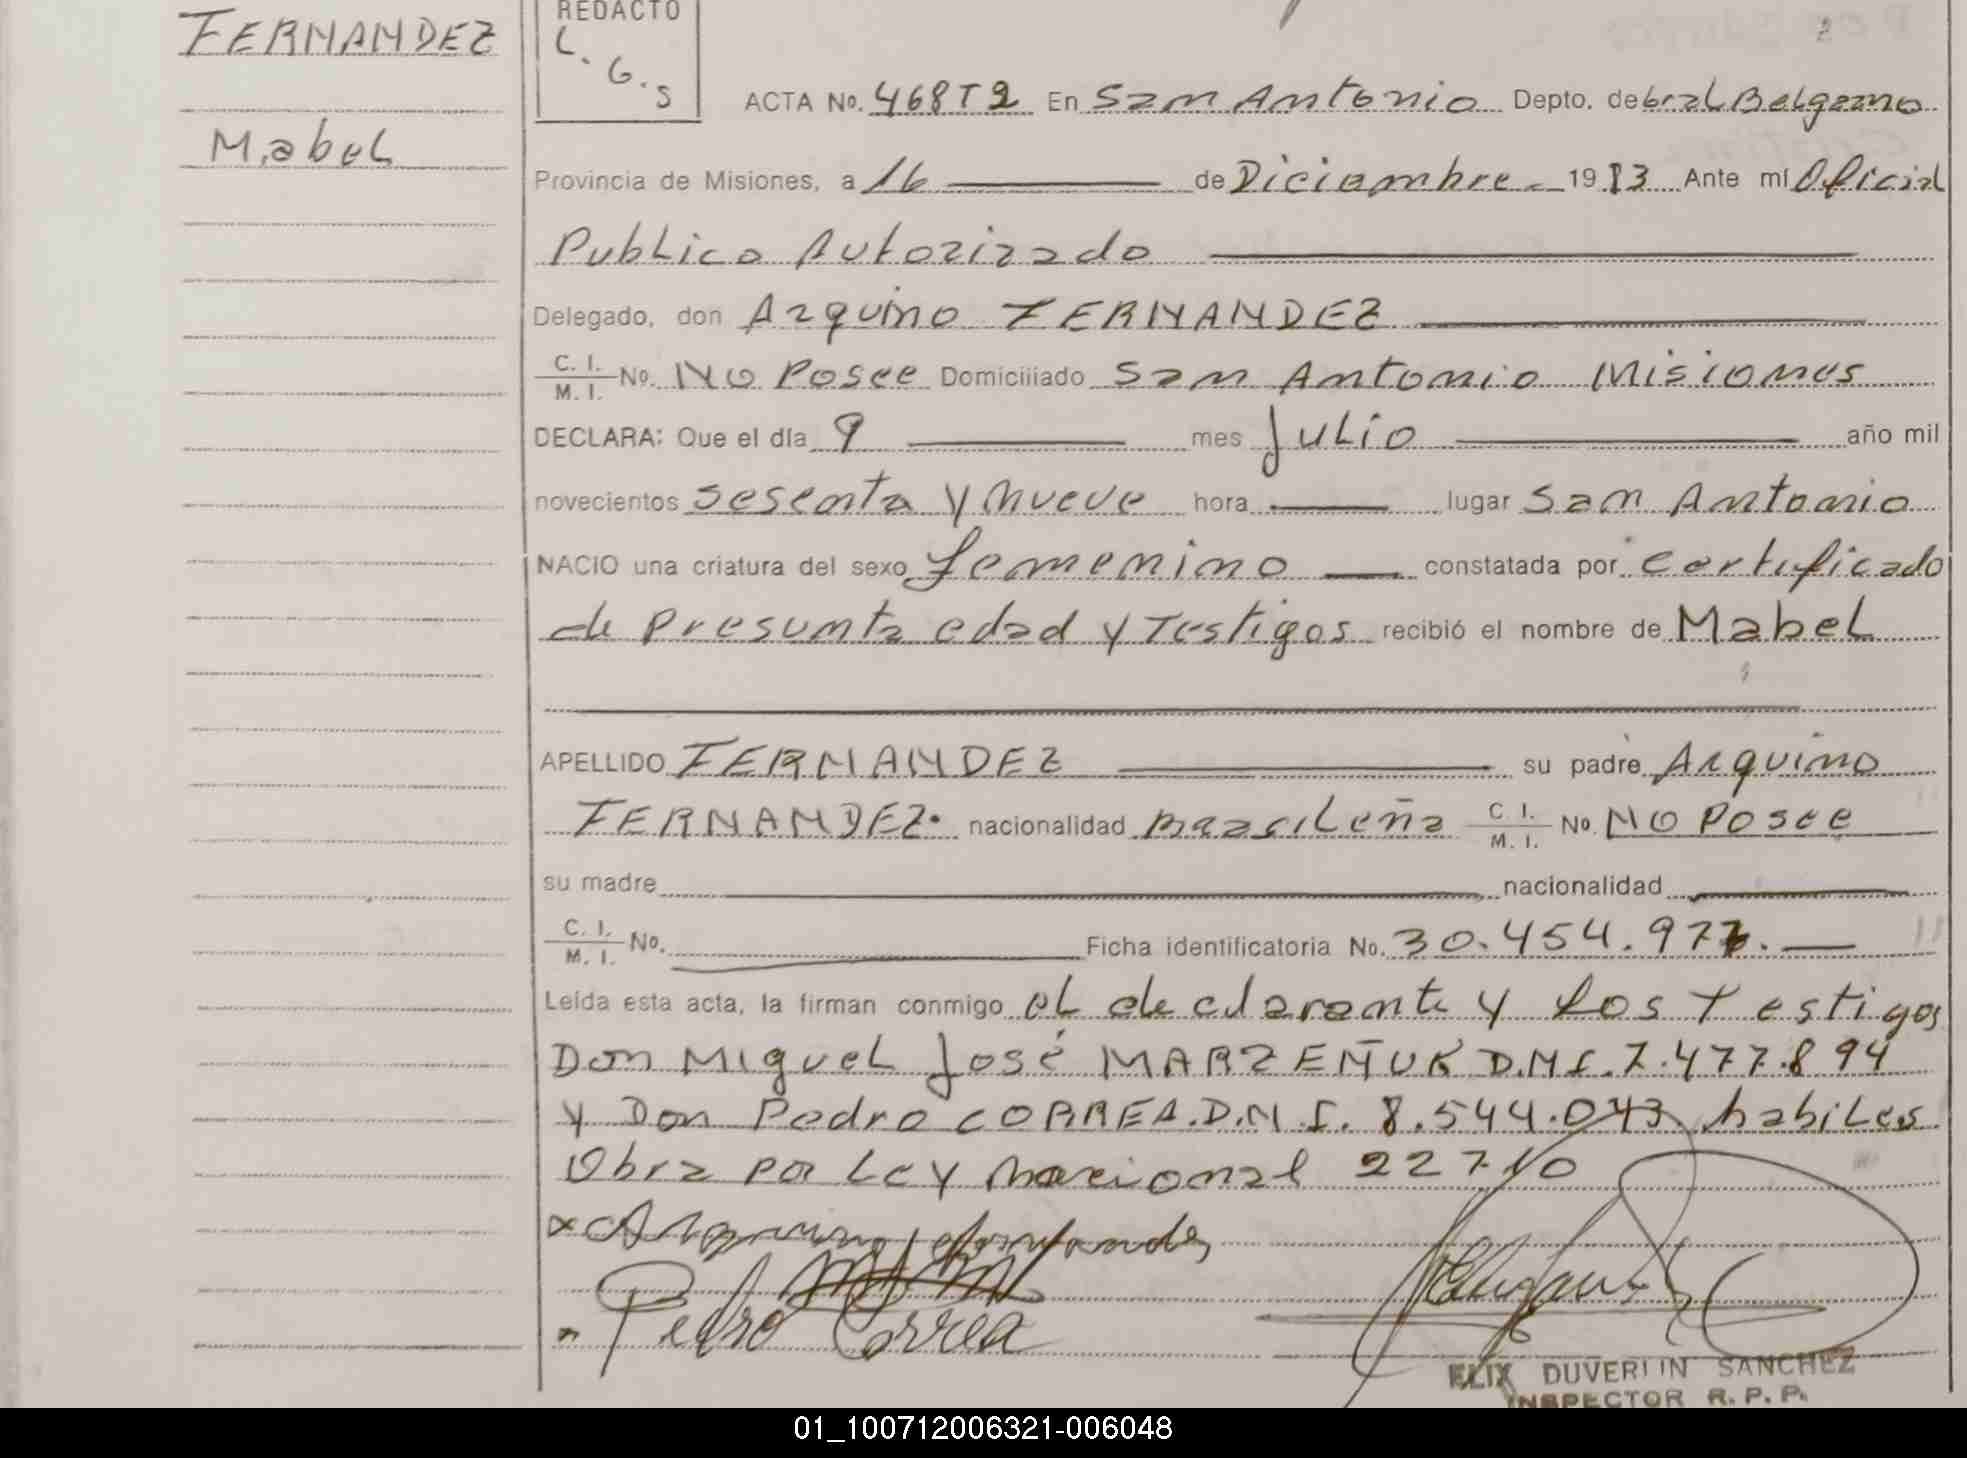 FERNANDEZ
Mabel
REDACTO
L. G. S
ACTA No. 468T2 En San Antonio Depto. de Gral Belgrano
Provincia de Misiones, a 16 de Diciembre 1983 Ante mí Oficial
Publico Autorizado
Delegado, don Arquino FERNANDEZ
C. I. / M. I. No. No Posee Domiciliado San Antonio Misiones
DECLARA: Que el día 9 mes Julio año mil
novecientos sesenta y nueve hora lugar San Antonio
NACIO una criatura del sexo femenino constatada por certificado
de Presunta edad y Testigos recibió el nombre de Mabel
APELLIDO FERNANDEZ su padre Arquino
FERNANDEZ. nacionalidad Brasileña C. I. / M. I. No. No Posee
su madre nacionalidad
C. I. / M. I. No. Ficha identificatoria No. 30.454.977.
Leída esta acta, la firman conmigo el declarante y los Testigos
Don Miguel José MARZEÑUK D.N.I. 7.477.894
y Don Pedro CORREA. D.N.I. 8.544.043 habiles
Obra por Ley nacional 22710
Pedro Correa
FELIX DUVERLIN SANCHEZ
INSPECTOR R. P. P.
01_100712006321-006048